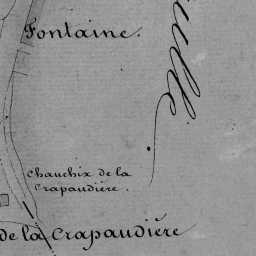 Fontaine.
Chauchix de la
Crapaudière.
de la Crapaudière